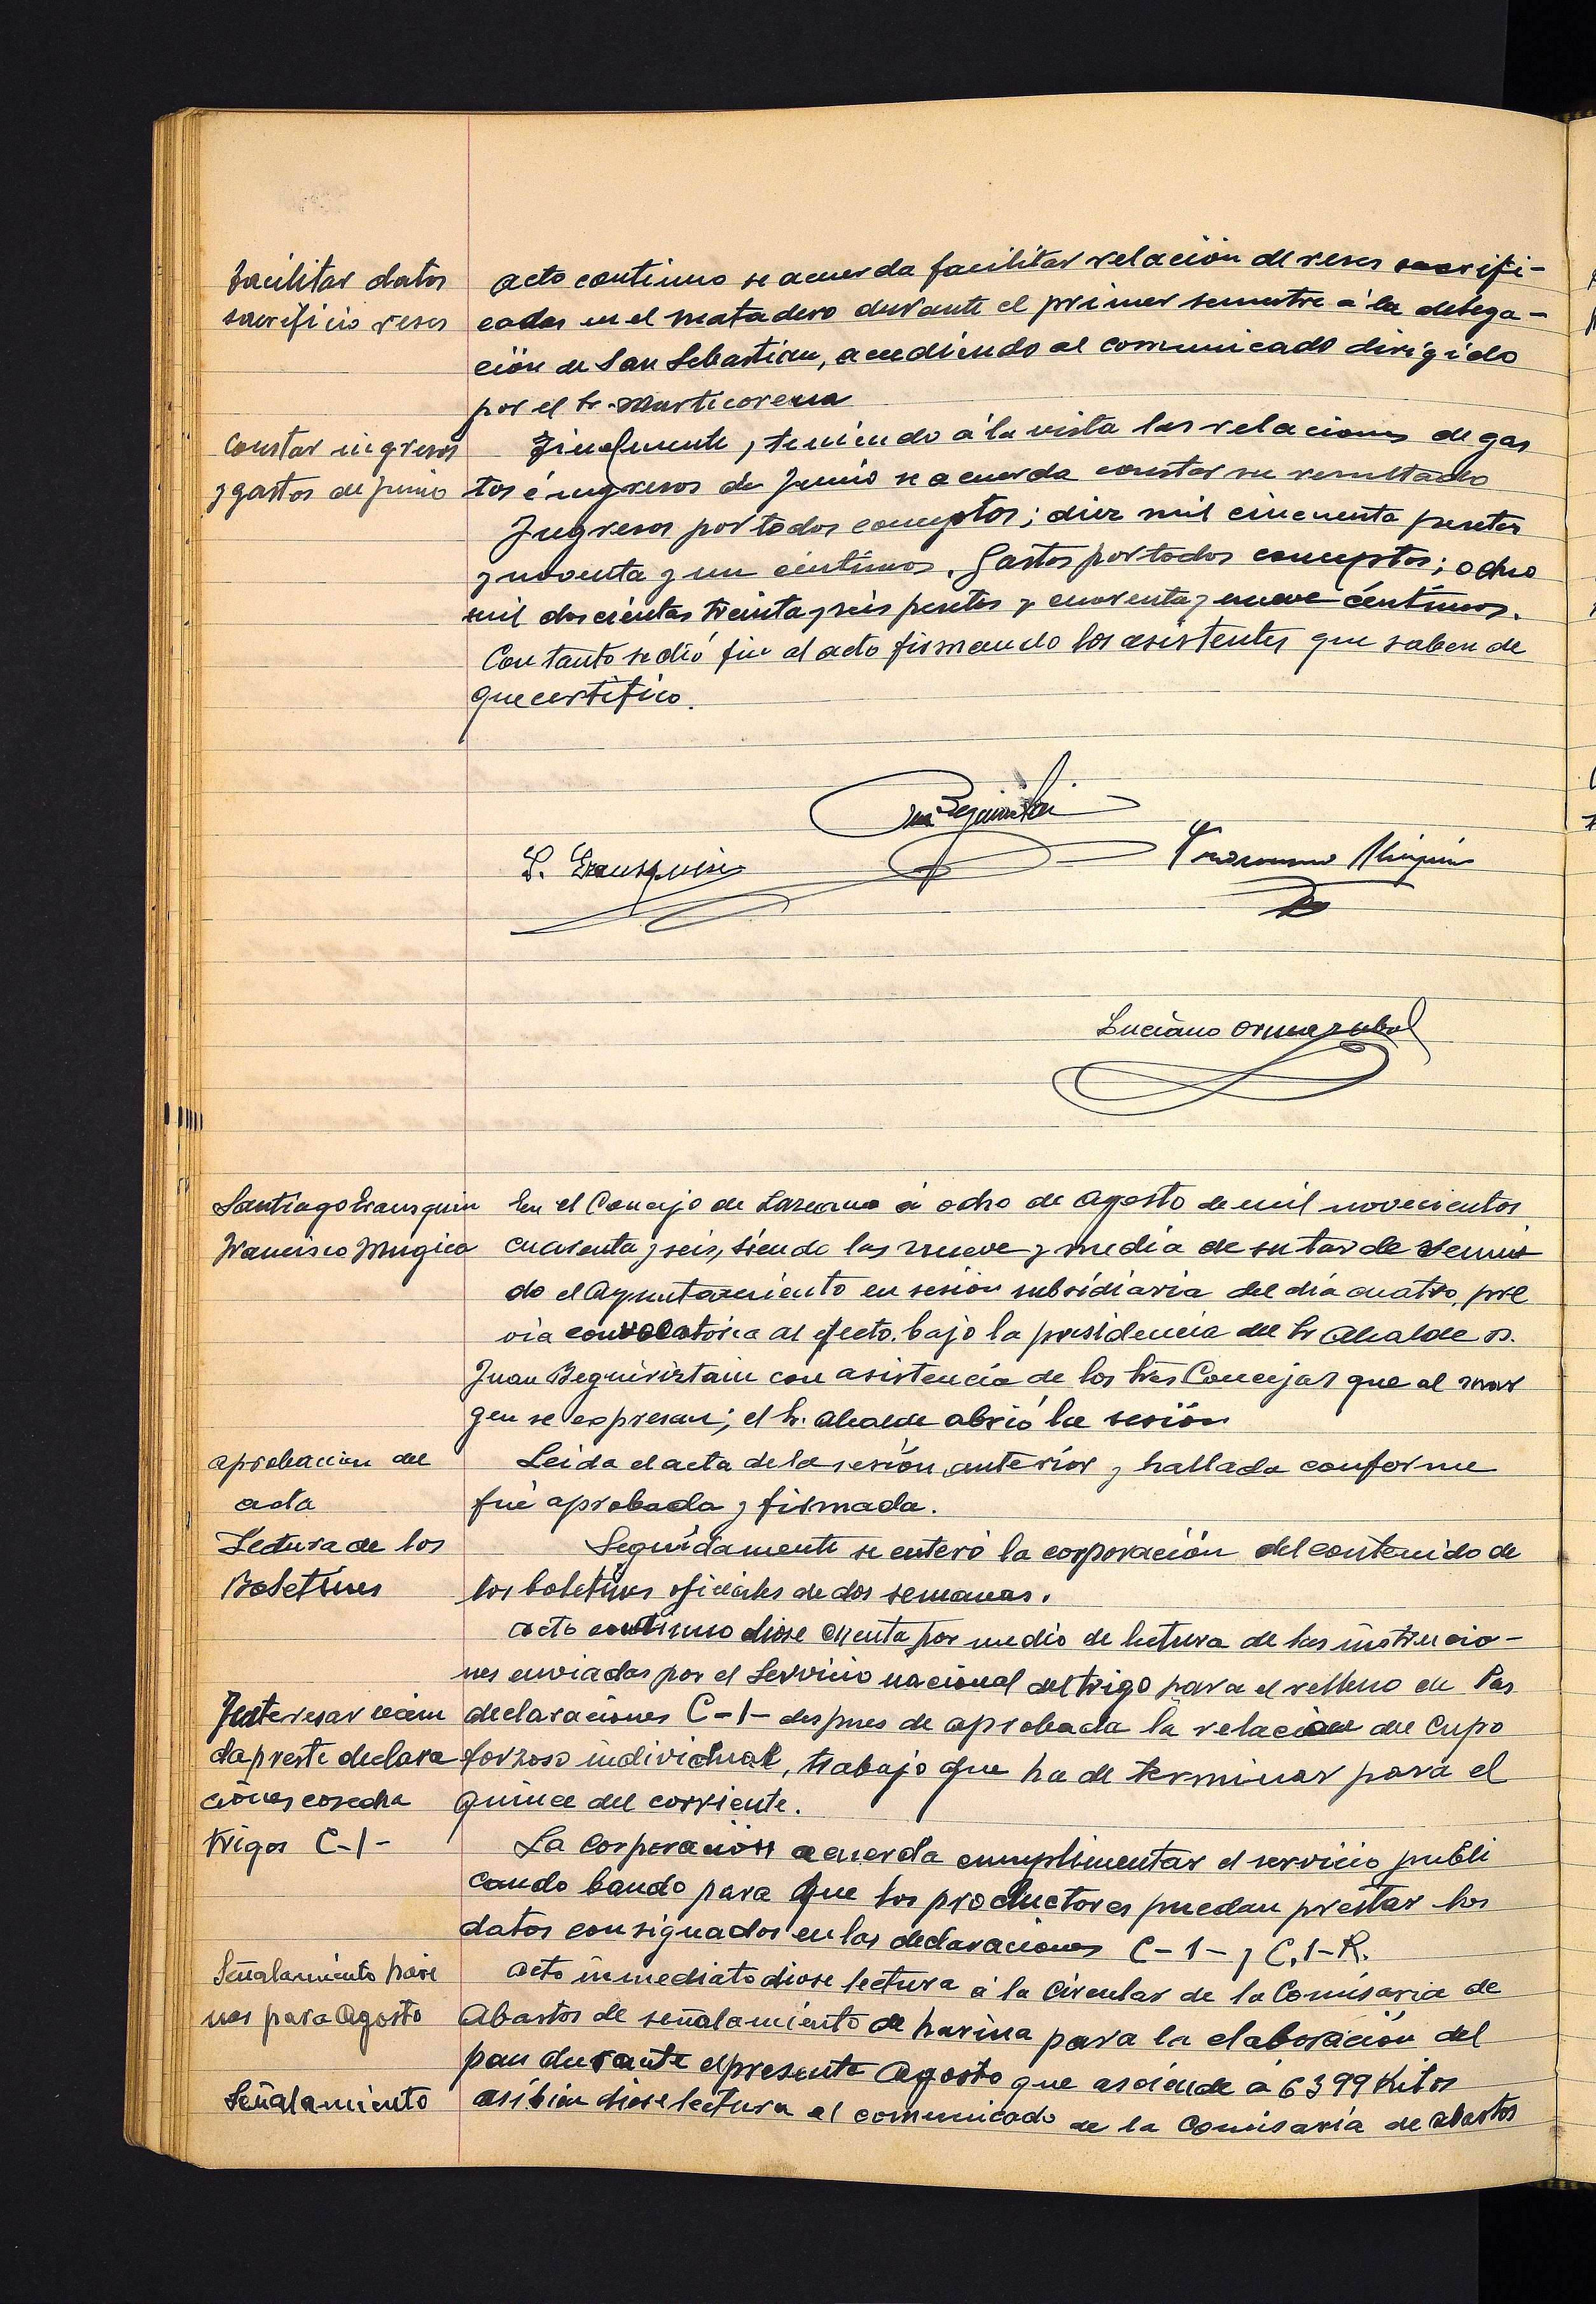 Facilitar datos
sacrificio reses
acto continuo se acuerda facilitar relación de reses sacrifi-
cadas en el matadero durante el primer semestre á la delega-
ción de San Sebastian, accediendo al comunicado dirigido
por el Sr. Marticorena
Constar ingresos
y gastos de Junio
Finalmente, teniendo á la vista las relaciones de gas
tos é ingresos de Junio se acuerda constar su resultado
Ingresos por todos conceptos; diez mil cincuenta pesetas
y noventa y un centimos. Gastos por todos conceptos; ocho
mil doscientas treinta y seis pesetas y cuarenta y nueve céntimos.
Con tanto se dió fin al acto firmando los asistentes que saben de
que certifico.
S. Erausquin
Luciano Ormazabal
Santiago Erausquin
Francisco Mugica
En el Concejo de Lazcano á ocho de Agosto de mil novecientos
cuarenta y seis, siendo las nueve y media de su tarde reuni
do el Ayuntamiento en sesión subsidiaria del dia cuatro, pre
via convocatoria al efecto, bajo la presidencia del Sr Alcalde D.
Juan Beguiristain con asistencia de los tres Concejas que al mar
gen se expresan; el Sr. alcalde abrió la sesión
aprobación del
acta
Leida el acta de la sesión anterior y hallada conforme
fué aprobada y firmada.
Lectura de los
Boletines
Seguidamente se enteró la corporación del contenido de
los boletines oficiales de dos semanas.
acto continuo diose cuenta por medio de lectura de las instruccio-
nes enviadas por el Servicio nacional del trigo para el relleno de las
declaraciones C-1- despues de aprobada la relación de cupo
forzoso individual, trabajo que ha de terminar para el
quince del corriente.
da preste declara
ciones cosecha
trigos C-1-
La corporación acuerda cumplimentar el servicio publi
cando bando para que los productores puedan prestar los
datos consignados en las declaraciones C-1- y C.1-R.
Señalamiento hari
nas para Agosto
acto inmediato diose lectura á la Circular de la Comisaria de
Abastos de señalamiento de harina para la elaboración del
pan durante el presente Agosto que asciende á 6399 Kilos
Señalamiento
asi bien diose lectura al comunicado de la Comisaría de abastos